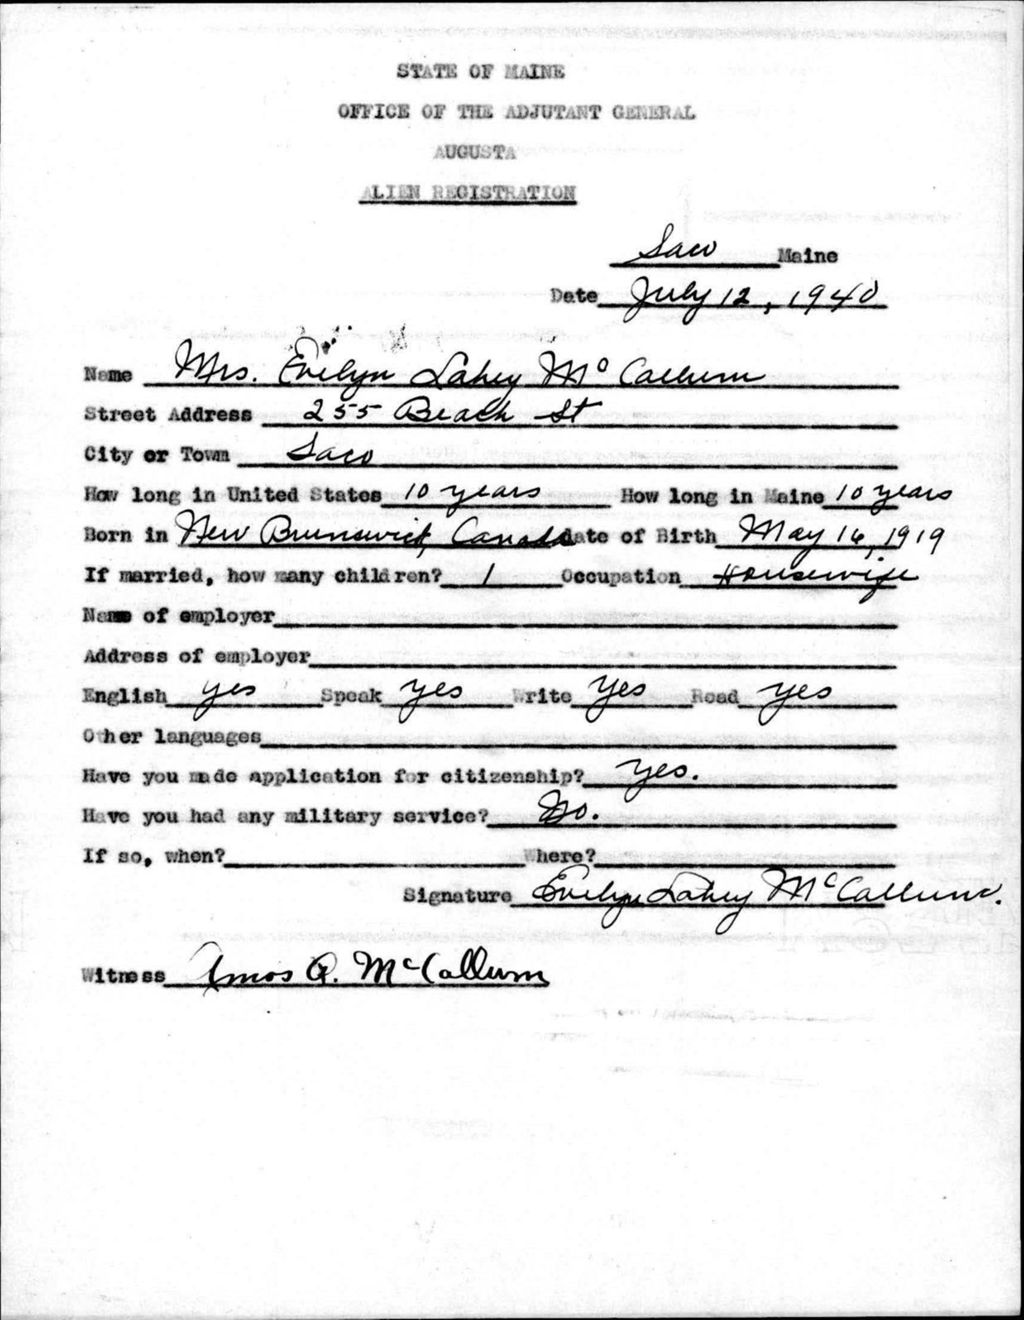 STATE OF MAINE
OFFICE OF THE ADJUTANT GENERAL
AUGUSTA
ALIEN REGISTRATION
Saco Maine
Date July 12, 1940
Name Mrs. Evelyn Lahey McCallum
Street Address 255 Beach St
City or Town Saco
How long in United States 10 years How long in Maine 10 years
Born in New Brunswick, Canada date of Birth May 16, 1919
If married, how many children? 1 Occupation Housewife
Name of employer
Address of employer
English yes Speak yes Write yes Read yes
Other languages
Have you made application for citizenship? Yes.
Have you had any military service? No.
If so, when? Where?
Signature Evelyn Lahey McCallum.
Witness Amos A. McCallum